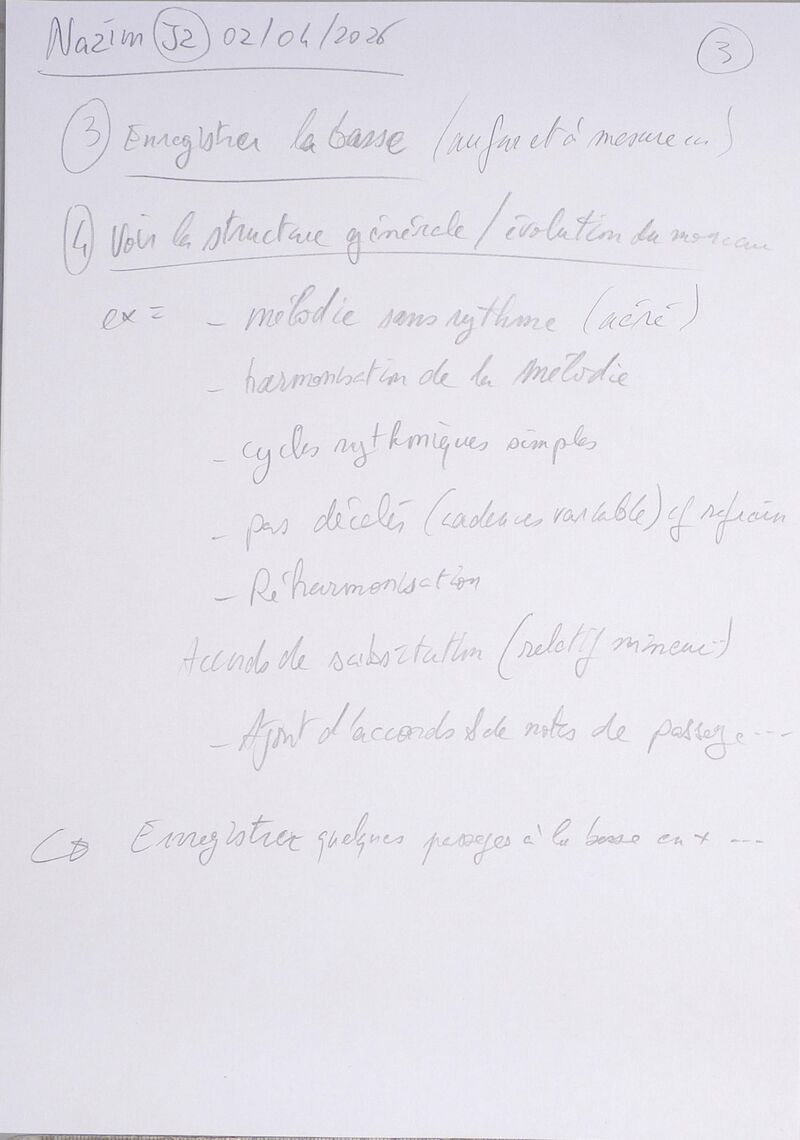 Nazim J2 02/04/2026
3
3 Enregistrer la basse (au fur et à mesure
4 Voir la structure générale / évolution du morceau
ex = - mélodie sans rythme (aéré)
- harmonisation de la mélodie
- cycles rythmiques simples
- pas décelés (cadences variable) cf refrain
- Réharmonisation
Accords de substitution (relatif mineur)
- Ajout d'accords & de notes de passage ...
Enregistrer quelques passages à la basse en + ...